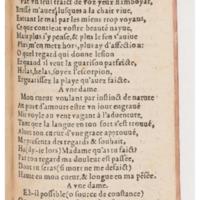 Par vn seul traict de voz yeux flamboyar,
Brusle m'auez, iusques a la chair viue,
Entant le mal par les miens trop voyans,
Ce que contient vostre beauté nayue,
Mais plus i'y pense, & plus le s'en auiue
Plus m'en metz hors, plus ay d'affection:
O quel regard qui donne lesion
Et quand il veut la guarison parfaicte
Helas, helas, soyez l'escorpion,
Et guarissez la playe qu'auez faicte.
A vne dame.
Mon cueur voulant par instinct de nature
Au parc d'amours estre vn iour engraué
Mit voyle au vent vagant à l'aduenture,
Tant que la langue en ton fort s'est trouué,
Alors ton cueur d'vne grace approuué,
Me presenta des regards & souhait,
Ha (dy-ie lors) Madame qu'as tu faict?
Par ton regard ma douleur est passée,
Dont tu seras (si mort ne me
Dame en mon cueur, & longue en ma pẽsée.
A vne dame.
Est-il possible (o source de constance)